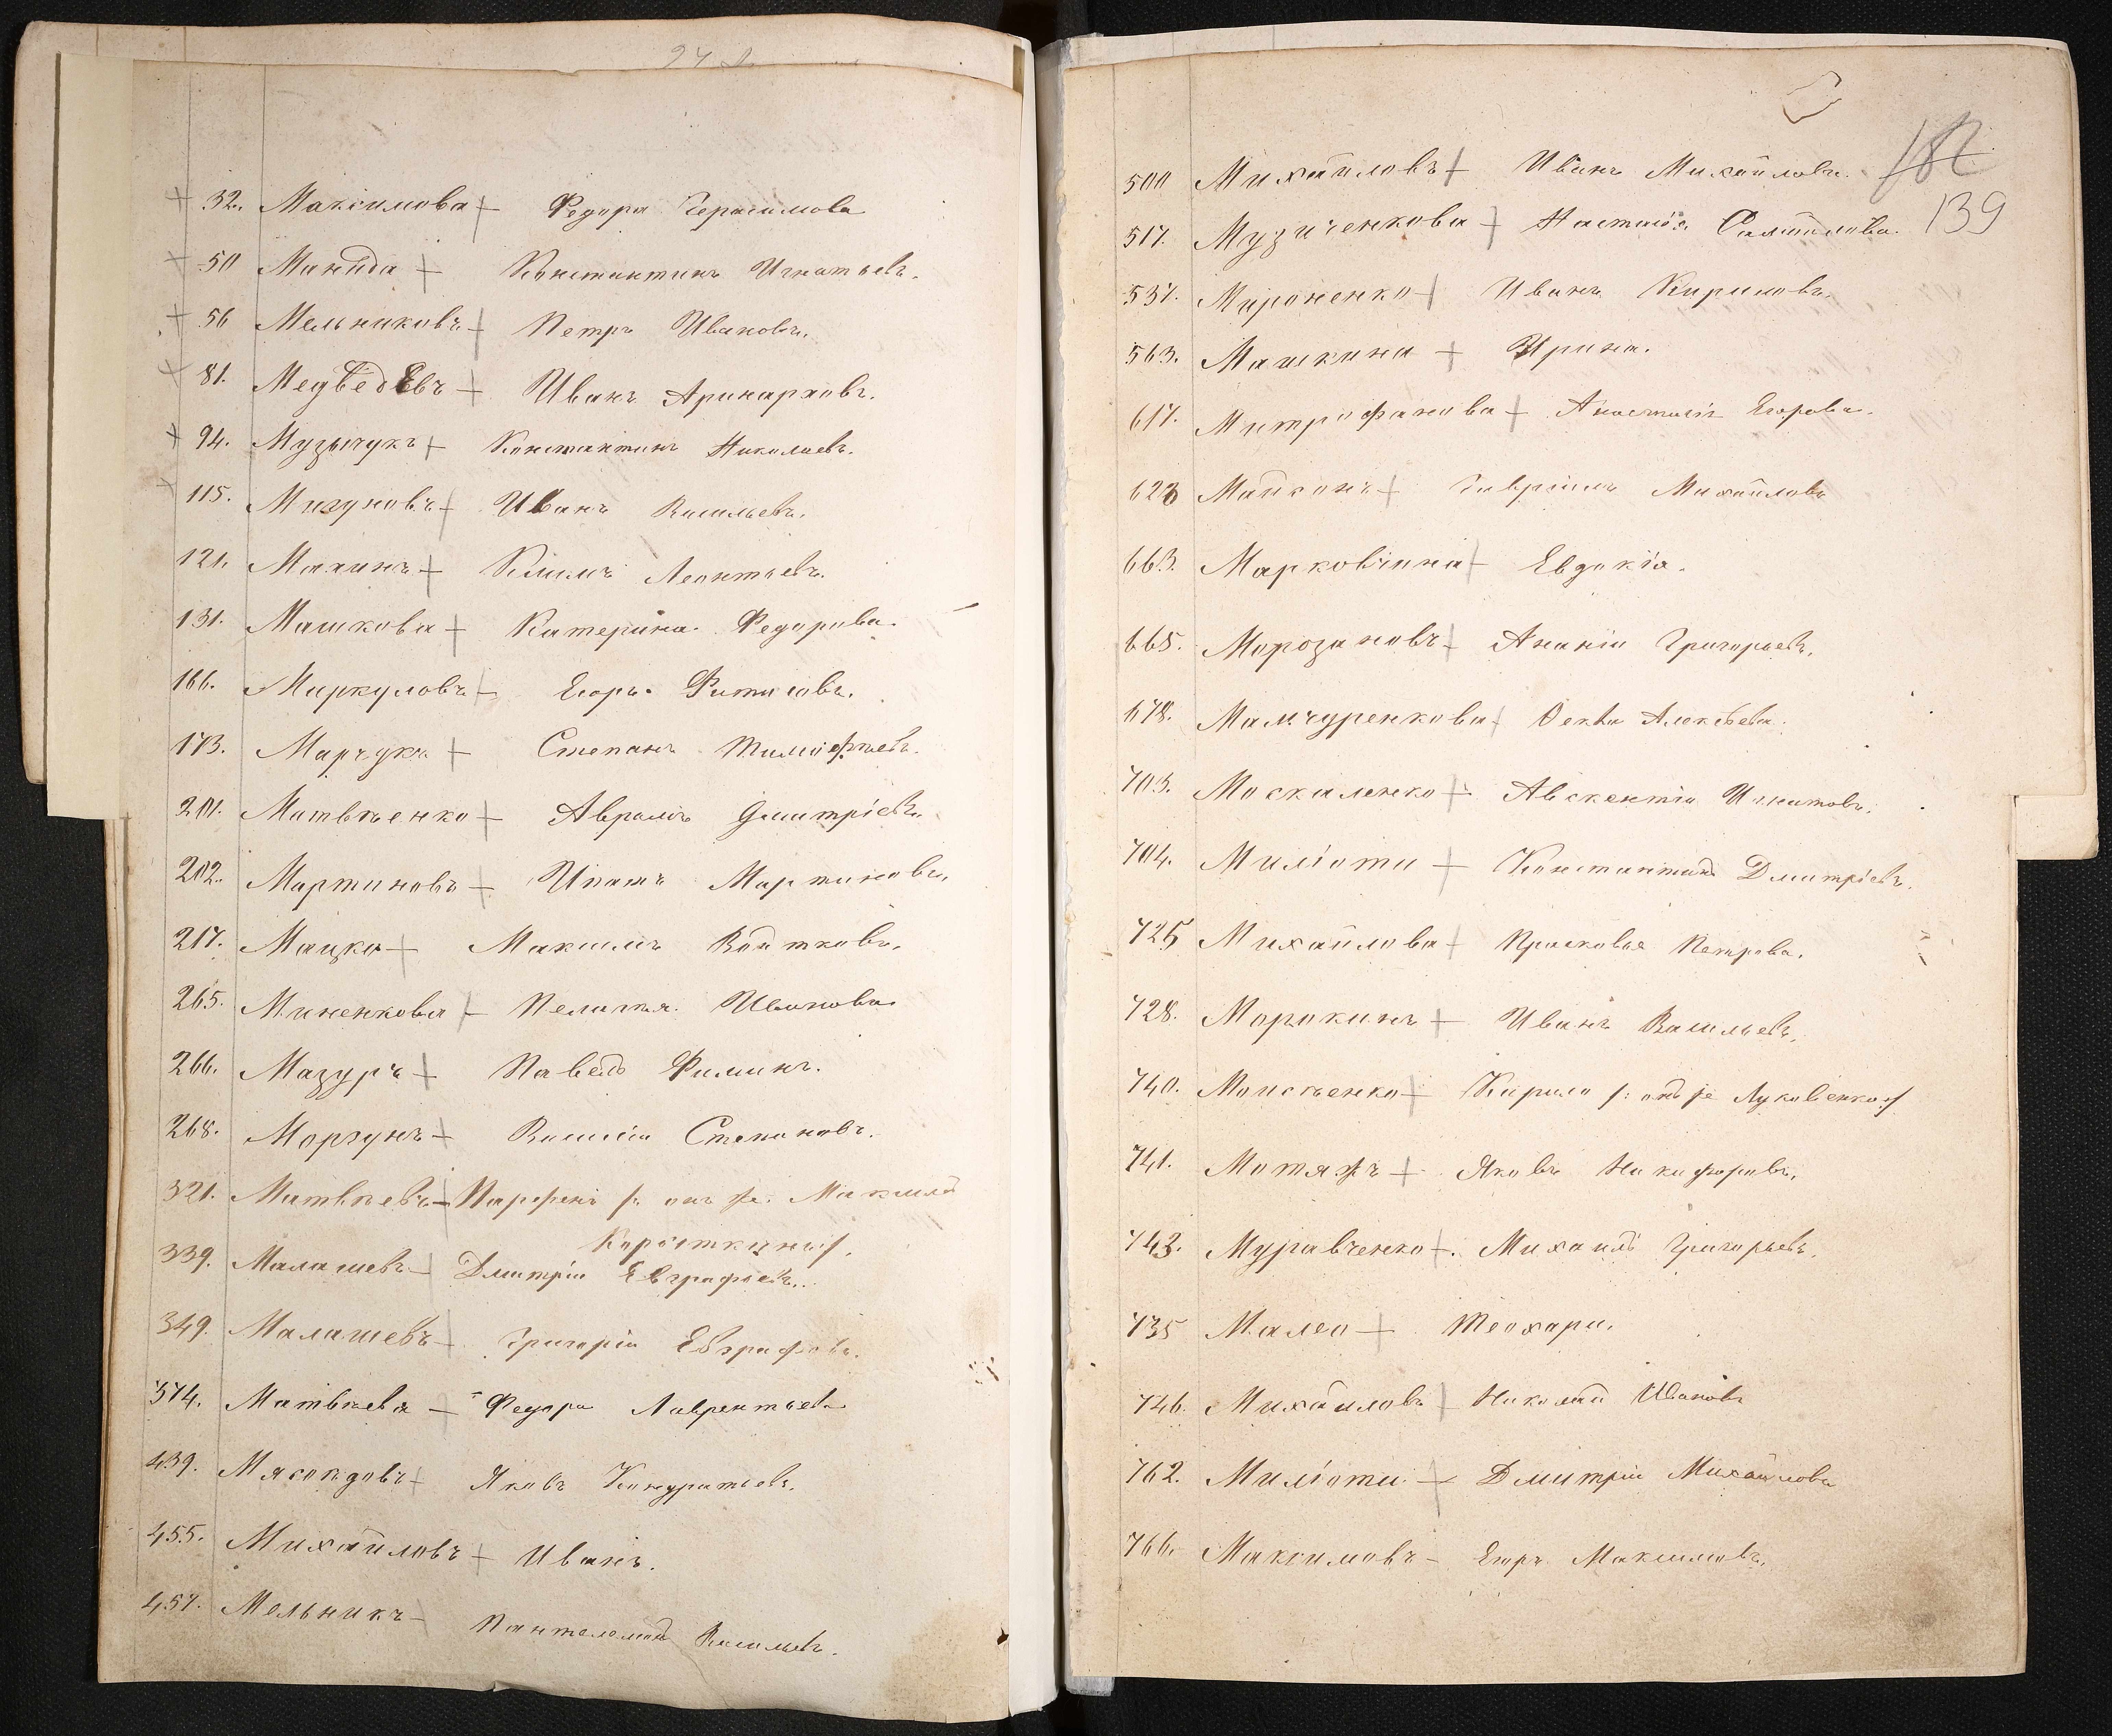 32. Максимова Федора Герасимова
50 Манида Константинъ Игнатьевъ.
56 Мельниковъ Петръ Ивановъ.
81. Медведевъ Иванъ Аринарховъ.
94. Музычукъ Константинъ Николаевъ.
115. Мигуновъ Иванъ Васильевъ.
121. Махинъ Климъ Леонтьевъ.
131. Машкова Катерина Федорова.
166. Меркуловъ Егоръ
173. Марчукъ Степанъ Тимофѣевъ.
201. Матвѣенко Аврамъ Дмитріевъ.
202. Мартиновъ Ипатъ Мартиновъ.
217. Мацко Максимъ Войтковъ.
265. Миненкова Пелагея Иванова
266. Мазуръ Павелъ Филинъ.
268. Моргунъ Василій Степановъ.
321. Матвѣевъ Парфенъ /: онъ же Максимъ
Коросткинъ:/.
339. Малашевъ Дмитрій Евграфьевъ.
349. Малашевъ Григорій Евграфовъ.
374. Матвѣева Федора Лаврентьева
439. Мясоѣдовъ Яковъ Кондратьевъ.
455. Михайловъ Иванъ.
457. Мельникъ Пантелемонъ Васильевъ.
182
139
500 Михайловъ Иванъ Михайловъ.
517. Музиченкова Настасія
537. Мироненко Иванъ Кириловъ.
563. Машкина Ирина.
617. Митрофанова Анастасія Егорова.
623 Майсонъ Гавріилъ Михайловъ
663. Марковічина Евдокія.
665. Морозановъ Ананій Григорьевъ.
678. Мамчуренкова Фекла Алексѣева.
703. Москаленко Авскентій Игнатовъ.
704. Миліоти Константинъ Дмитріевъ.
725 Михайлова Прасковья Петрова.
728. Морокинъ Иванъ Васильевъ.
740. Моисѣенко Кирило /: онъ же Луковенко:/
741. Мотяжъ Яковъ Никифоровъ.
743. Муравченко Михаилъ Григорьевъ.
735 Малео Теохари.
746. Михайловъ Николай Ивановъ
762. Миліоти Дмитрій Михайловъ
766. Максимовъ Егоръ Максимовъ.